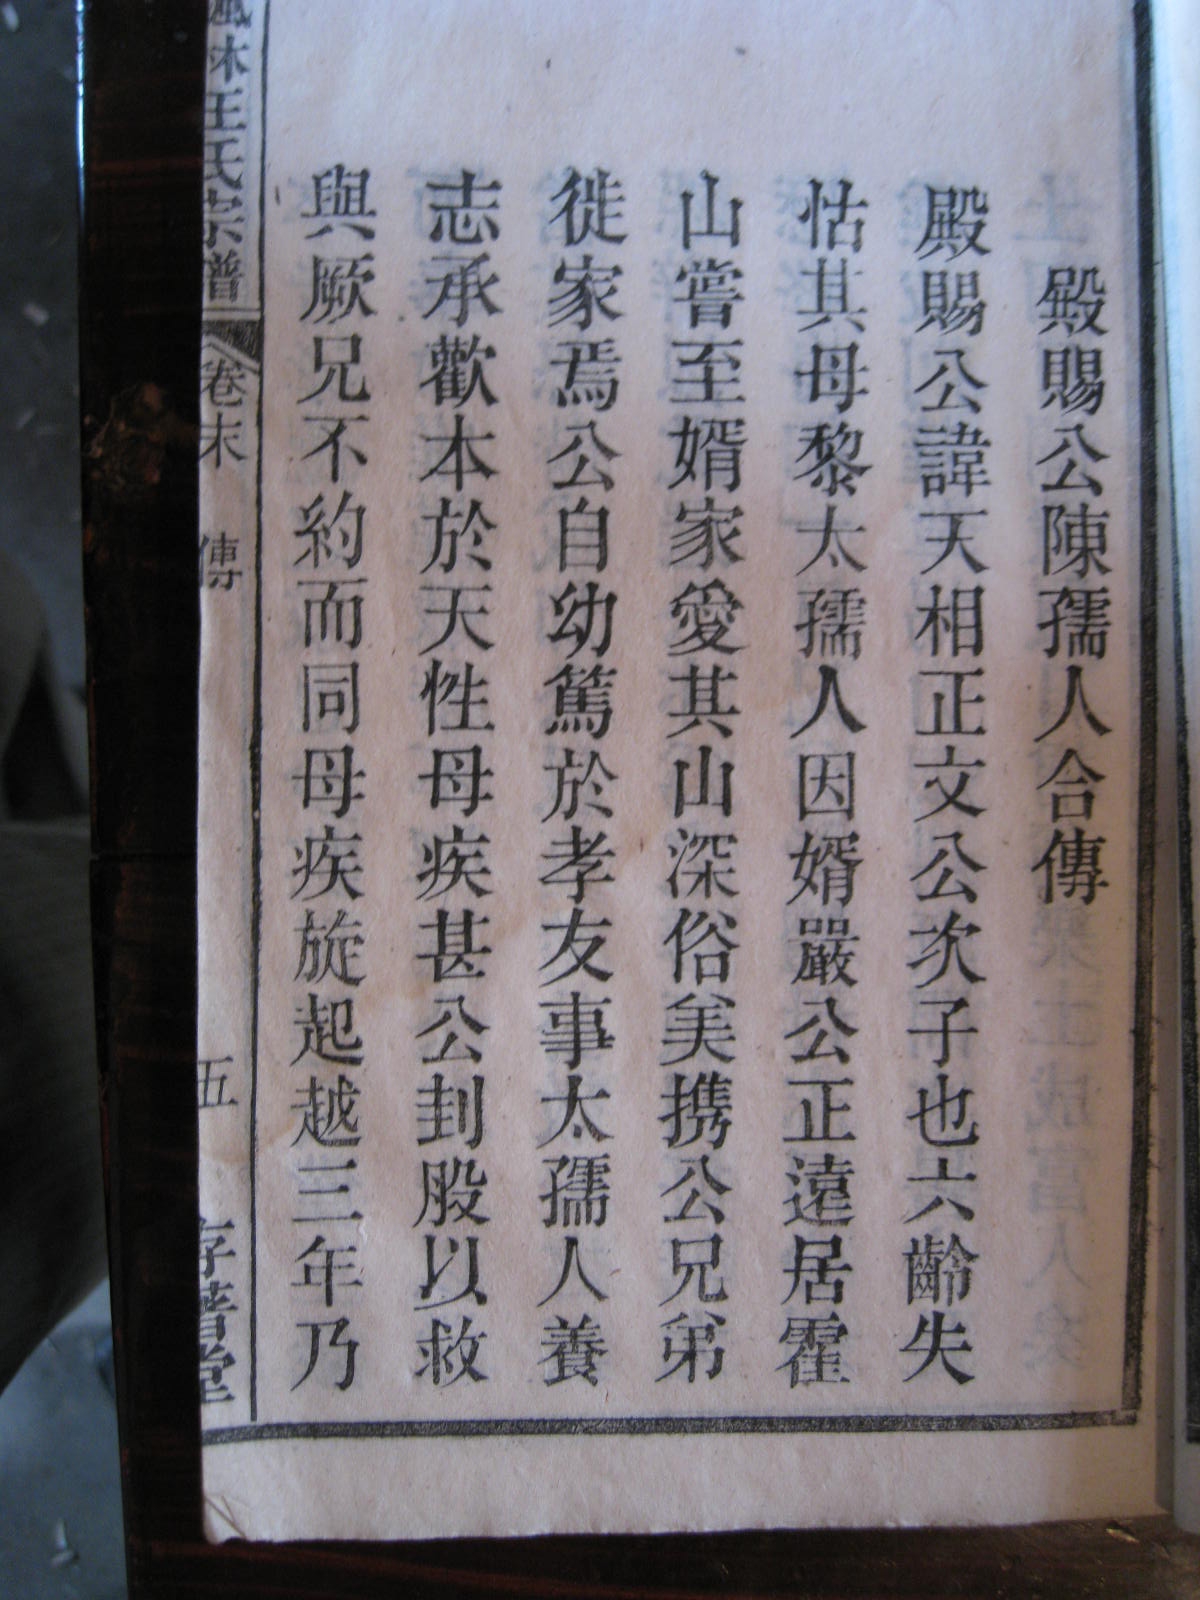 殿賜公陳孺人合傳
殿賜公諱天相正文公次子也六齡失
怙其母黎太孺人因婿嚴公正遠居霍
山嘗至婿家愛其山深俗美携公兄弟
徙家焉公自幼篤於孝友事太孺人養
志承歡本於天性母疾甚公刲股以救
與厥兄不約而同母疾旋起越三年乃
林王氏宗譜 卷末 傳 五 存著堂